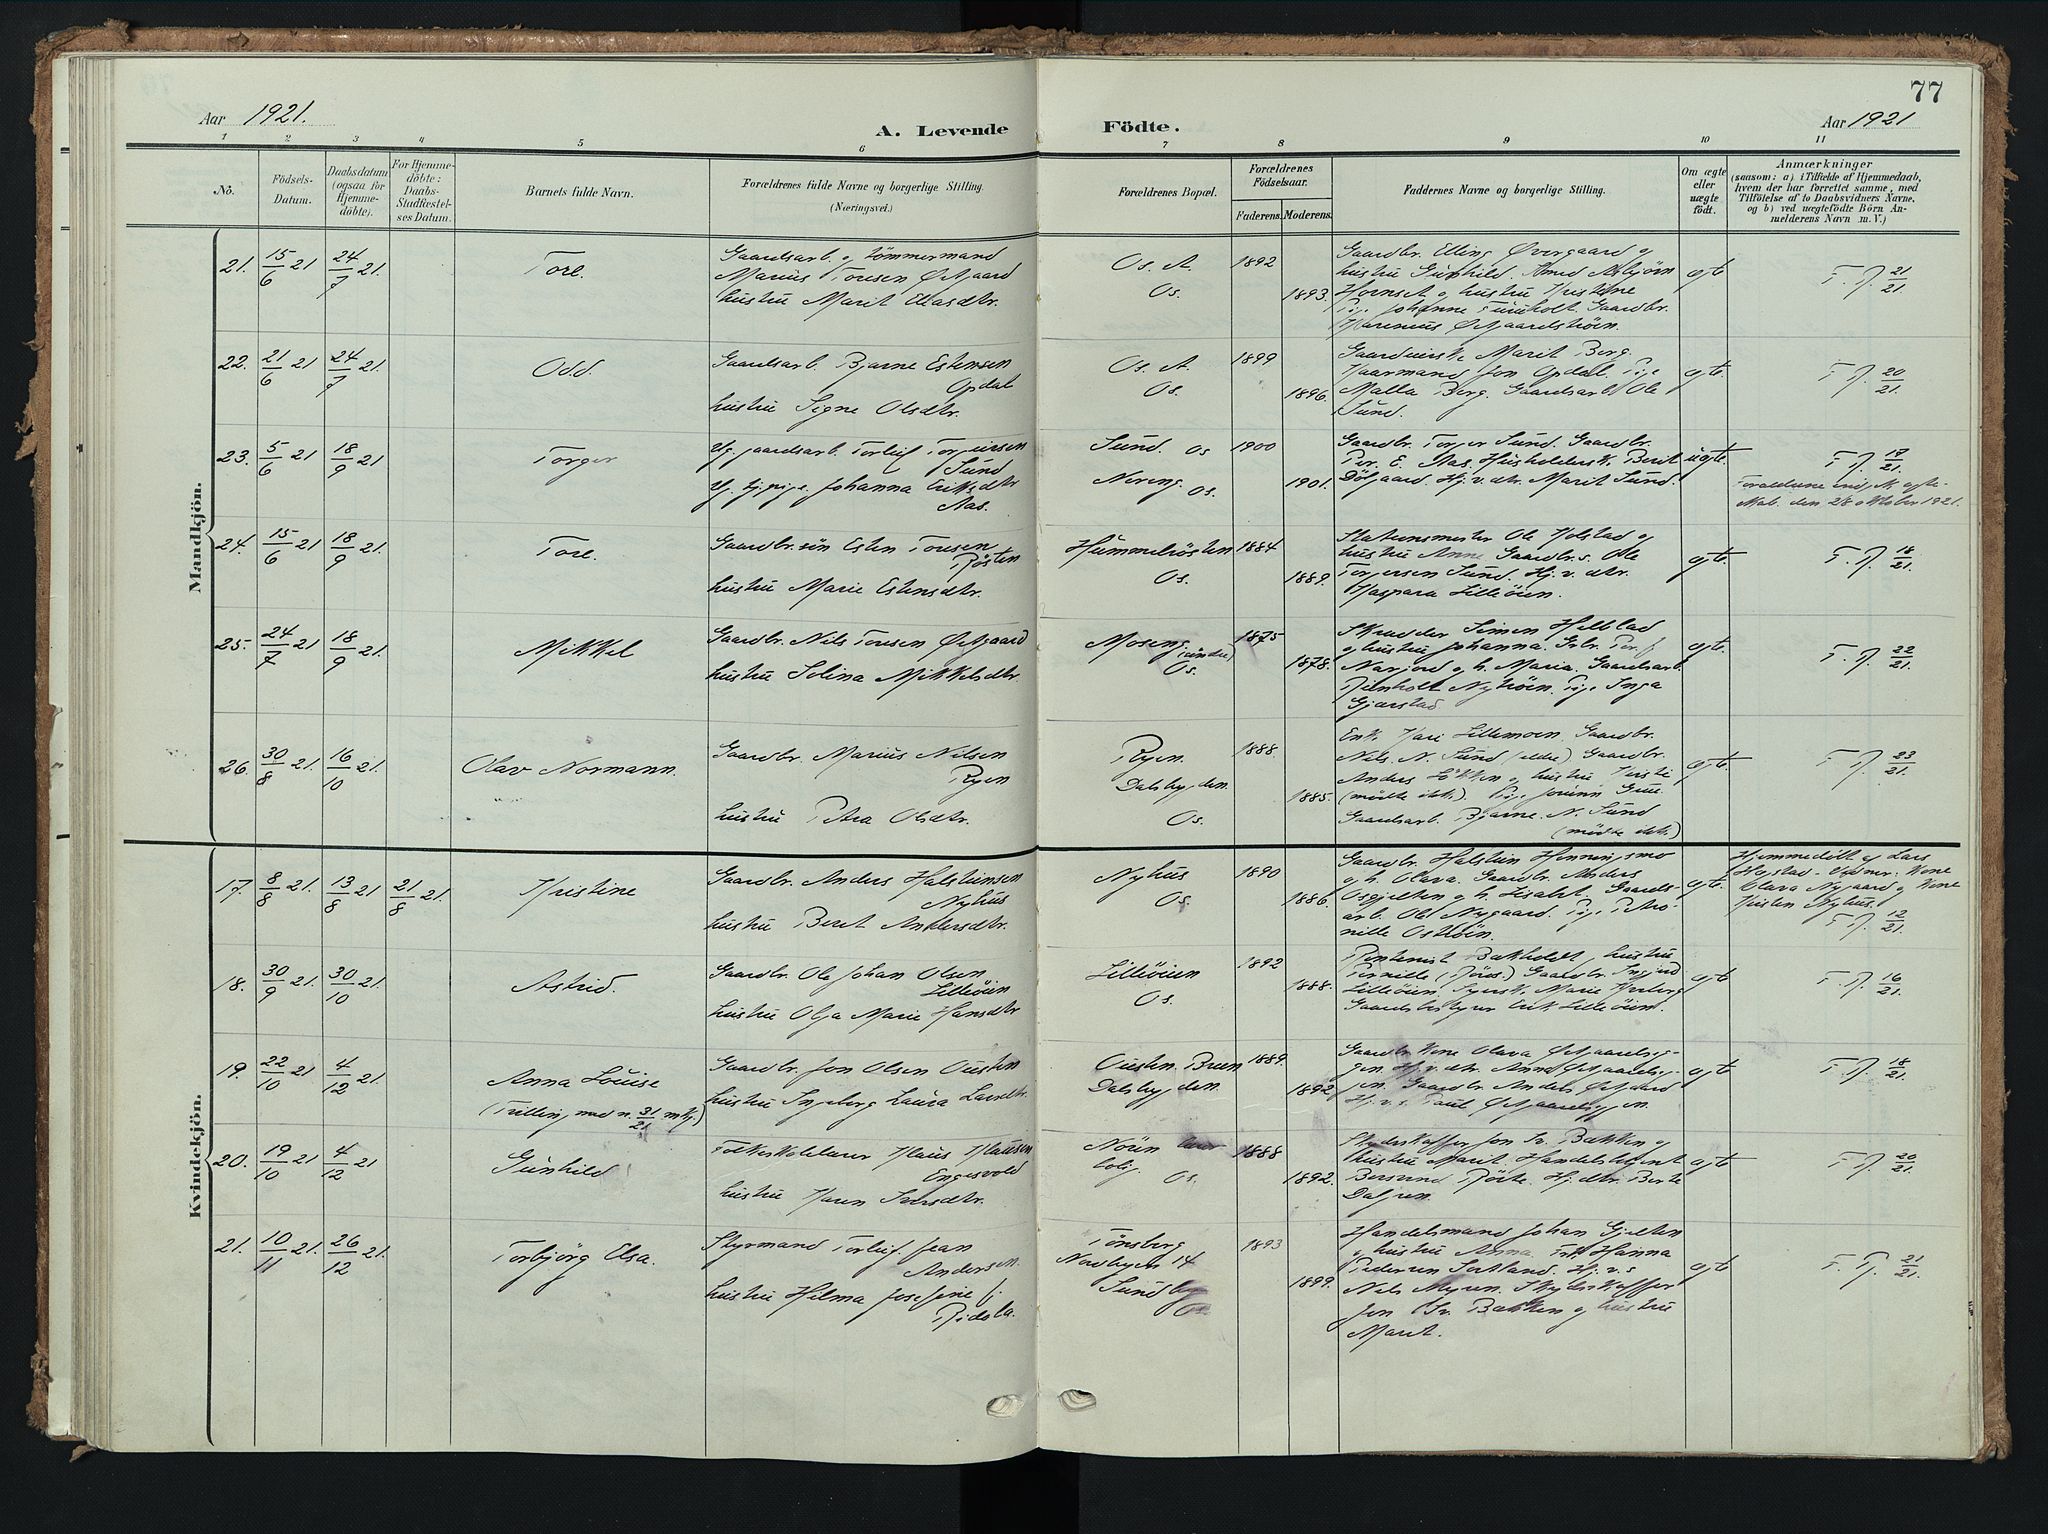 77
Aar 1921.
A. Levende Födte.
Aar 1921
1 2 3 4 5 6 7 8 9 10 11
No.
Födsels-Datum.
Daabsdatum (ogsaa for Hjemme-döbte).
For Hjemme-döbte: Daabs-Stadfæstel-ses Datum.
Barnets fulde Navn.
Forældrenes fulde Navne og borgerlige Stilling. (Næringsvei.)
Forældrenes Bopæl.
Forældrenes Födselsaar.
Faderens. Moderens.
Faddernes Navne og borgerlige Stilling.
Om ægte eller uægte födt.
Anmærkninger
(saasom: a) i Tilfælde af Hjemmedaab,
hvem der har forrettet samme, med
Tilföielse af to Daabsvidners Navne,
og b) ved uægtefödte Börn An-
melderens Navn m. V.)
Mandkjön.
21. 15/6 21 24/7 21. Tore.
Gaardsarb. og tömmermand
Marius Toresen Östgaard
hustru Marit Olasdtr.
Os. A.
Os.
1892
1893.
Gaardbr. Elling Övergaard og
hustru Gunhild. Asbjörn
Hornset og hustru Kristine
Pige Johanne Furuholt. Gaardbr.
Karenius Östgaardströen.
egte
F. A. 21/21.
22. 21/6 21 24/7 21. Odd.
Gaardsarb. Bjarne Estensen
Opdal
hustru Signe Olsdtr.
Os. A.
Os.
1899
1896.
Marit Berg.
Jon Opdal. Pige
Malla Berg. Gaardsarb. Ole
Sund.
egte.
F. A. 20/21.
23. 5/6 21 18/9 21 Torger
Ug. gaardsarb. Torleif Torgersen
Sund
Ug. tj.pige Johanna Eriksdtr
Aas.
Sund. Os
Nereng. Os.
1900
1901.
Gaardbr. Torger Sund. Gaardbr.
Per. E. Aas. Husholdersk. Berit
Dölgaard. Hj.v. dtr. Marit Sund.
uegte.
F. A. 17/21.
Forældrene indg. egte-
skab den 28 oktober 1921.
24. 15/6 21 18/9 21. Tore.
Gaardbr.sön Esten Toresen
Rösten
hustru Marie Estensdtr.
Hummelrösten
Os.
1884
1889.
Stationsmester Ole Holstad og
hustru Anne Gaardbr.s. Ole
Torgersen Sund. Hj. v. dtr.
Kaspara Lilleöien.
egte.
F. A. 18/21.
25. 24/7 21 18/9 21. Mikkel
Gaardbr. Nils Toresen Östgaard
hustru Solina Mikkelsdtr.
Moseng (söndre)
Os.
1875
1878.
Skrædder Simen
og hustru Johanna. Gbr. Per J.
Narjord og h. Maria. Gaardsarb.
Nytröen. Pige Inga
Gjærstad
egte.
F. A. 22/21.
26. 30/8 21. 16/10 21. Olav Normann.
Gaardbr. Marius Nilsen
Ryen
hustru Petra Olsdtr.
Ryen
Dalsbygden.
Os.
1888.
1885.
Enke Kari Lillemoen. Gaardbr.
Nils. N. Sund (eldre) Gaardbr.
Anders Løkken og hustru
(mödte ikke). Pige Jorunn
Gaardsarb. Bjarne. N. Sund
(mödte ikke)
egte.
F. A. 23/21.
Kvindekjön.
17. 8/8 21. 13/8 21 21/8 21. Kristine
Gaardbr. Anders Halsteinsen
Nyhus
hustru Beret Andersdtr.
Nyhus
Os.
1890
1886.
Gaardbr. Halstein Henningsmo
og h. Olava. Gaardbr. Anders
Osgjelten og h. Lisabet. Gaards-
arb. Ole Nygaard. Pige Petro-
nille Oströen.
egte.
Hjemmedöbt af Lars
Vidner: Kone
Olava Nygaard og Kone
Kirsten Nyhus.
F. A. 12/21.
18. 30/9 21. 30/10 21. Astrid.
Gaardbr. Ole Johan Olsen
Lilleöien
hustru Olga Marie Hansdtr
Lilleöien
Os.
1892
1888.
Bakholdt, hustru
Pernille (Röros.) Gaardbr.
Lilleöien. Marie
Gaardsbestyrer Erik Lilleöien.
egte
F. A. 16/21.
19. 22/10 21 4/12 21. Anna Louise
(Tvilling med n. 31/21 mkj.)
Gaardbr. Jon OlsenOusten
hustru Ingeborg Laura Larsdtr.
Ousten. Breen
Dalsbygden.
1889.
1892
Gaardbr. Kone Olava Östgaardseg-
gen. Hj.v. dtr. Anna Östgaardseg-
gen. Gaardbr. Anders Östgaard
Hj.v.s. Paul Östgaardseggen.
egte
F. A. 18/21.
20. 19/10 21 4/12 21 Gunhild
Folkeskolelærer Klaus Klausen
Engesvold
hustru Karen Larsdtr.
Nören lærer
bolig
Os.
1888
1892.
Skydsskaffer Jon Sr. Bakken og
hustru Marit. Handelsbetjent
Bersvend Röste. Hj.dtr. Berte
Daljren.
egte
F. A. 20/21.
21. 10/11 21. 26/12 21. Torbjörg Elsa.
Styrmand Torleif Jean
Andersen.
hustru Hilma Josefine f.
Tönsberg
Nordbyen 14
Sundby
Os.
1893
1899.
Handelsmand Johan Gjelten
og hustru Anna Frk. Hanna
Pedersen Sortland. Hj.v.s
Nils Myren. Skydsskaffer
Jon Sr. Bakken og hustru
Marit.
egte
F. A. 21/21.